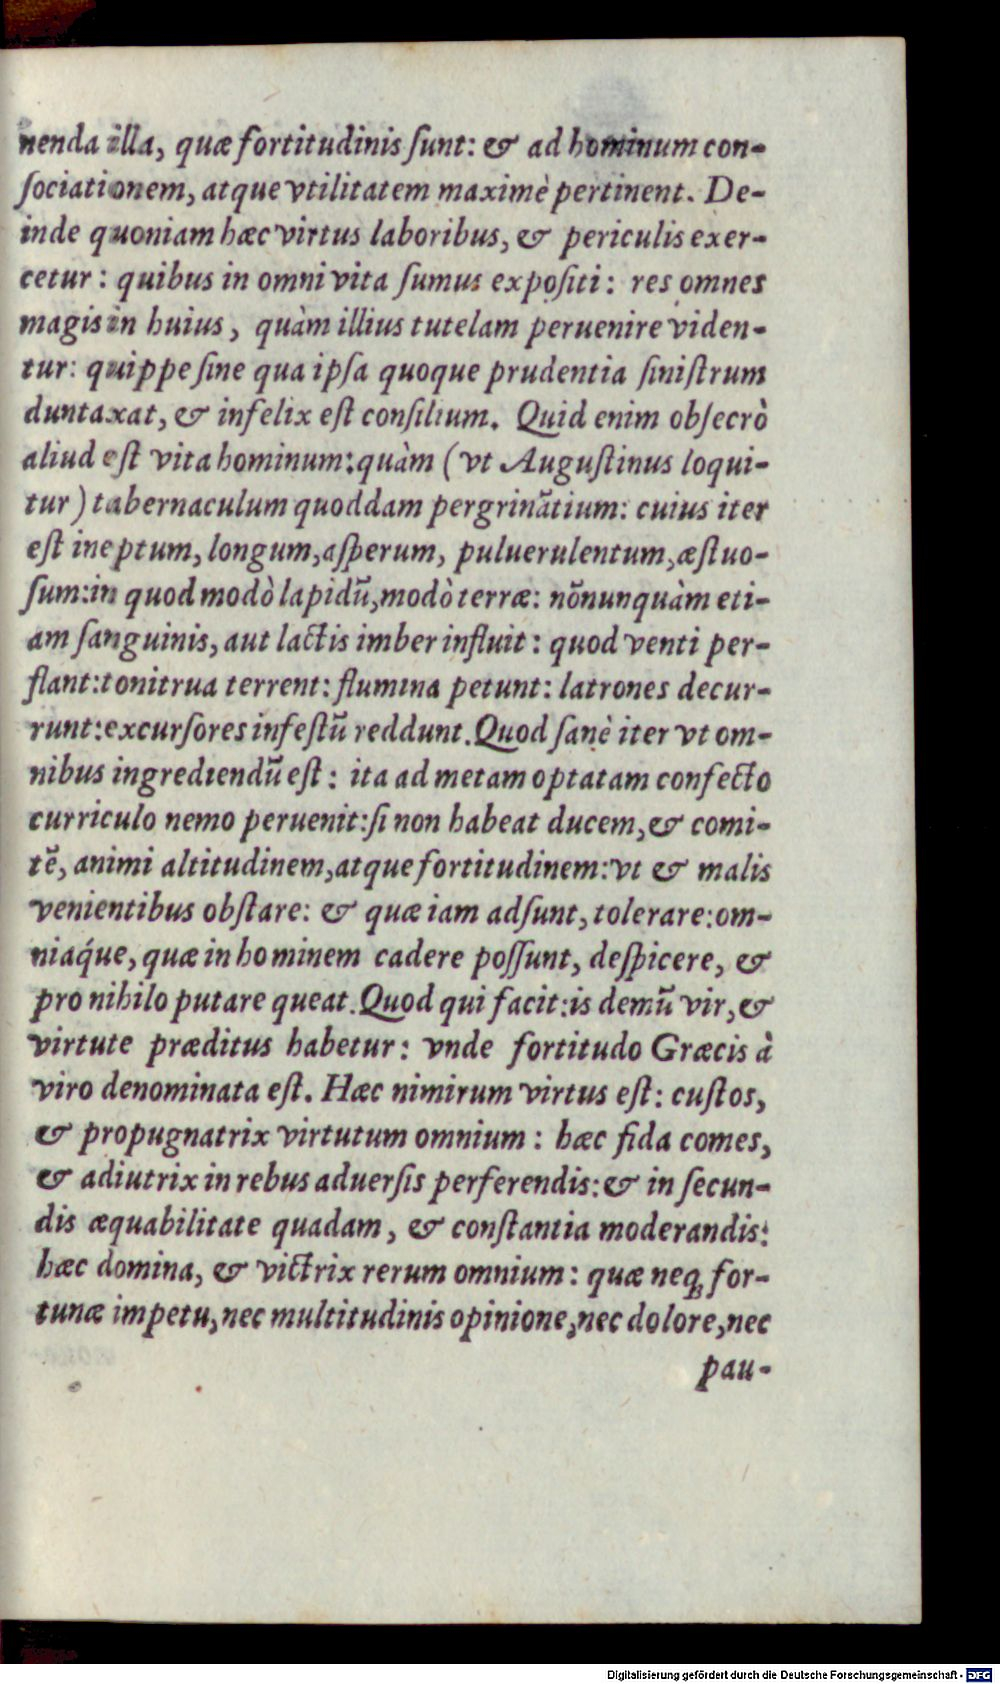 nenda illa, quæ fortitudinis ſunt: & ad hominum con-
ſociationem, atque vtilitatem maximè pertinent. De-
inde quoniam hæc virtus laboribus, & periculis exer-
cetur: quibus in omni vita ſumus expoſiti: res omnes
magis in huius, quàm illius tutelam peruenire viden-
tur: quippe ſine qua ipſa quoque prudentia ſiniſtrum
duntaxat, & infelix eſt conſilium. Quid enim obſecrò
aliud eſt vita hominum: quàm (vt Auguſtinus loqui-
tur) tabernaculum quoddam pergrinãtium: cuius iter
eſt ineptum, longum, aſperum, puluerulentum, æſtuo-
ſum: in quod modò lapidũ, modò terræ: nõnunquàm eti-
am ſanguinis, aut lactis imber influit: quod venti per-
flant: tonitrua terrent: flumina petunt: latrones decur-
runt: excurſores infeſtũ reddunt. Quod ſanè iter vt om-
nibus ingrediendũ eſt: ita ad metam optatam confecto
curriculo nemo peruenit: ſi non habeat ducem, & comi-
tẽ, animi altitudinem, atque fortitudinem: vt & malis
venientibus obſtare: & quæ iam adſunt, tolerare: om-
niaq́ue, quæ in hominem cadere poſſunt, deſpicere, &
pro nihilo putare queat. Quod qui facit: is demũ vir, &
virtute præditus habetur: vnde fortitudo Græcis à
viro denominata eſt. Hæc nimirum virtus eſt: cuſtos,
& propugnatrix virtutum omnium: hæc fida comes,
& adiutrix in rebus aduerſis perferendis: & in ſecun-
dis æquabilitate quadam, & conſtantia moderandis:
hæc domina, & victrix rerum omnium: quæ neqꝫ for-
tunæ impetu, nec multitudinis opinione, nec dolore, nec
pau-
Digitalisierung gefördert durch die Deutsche Forschungsgemeinschaft - DFG